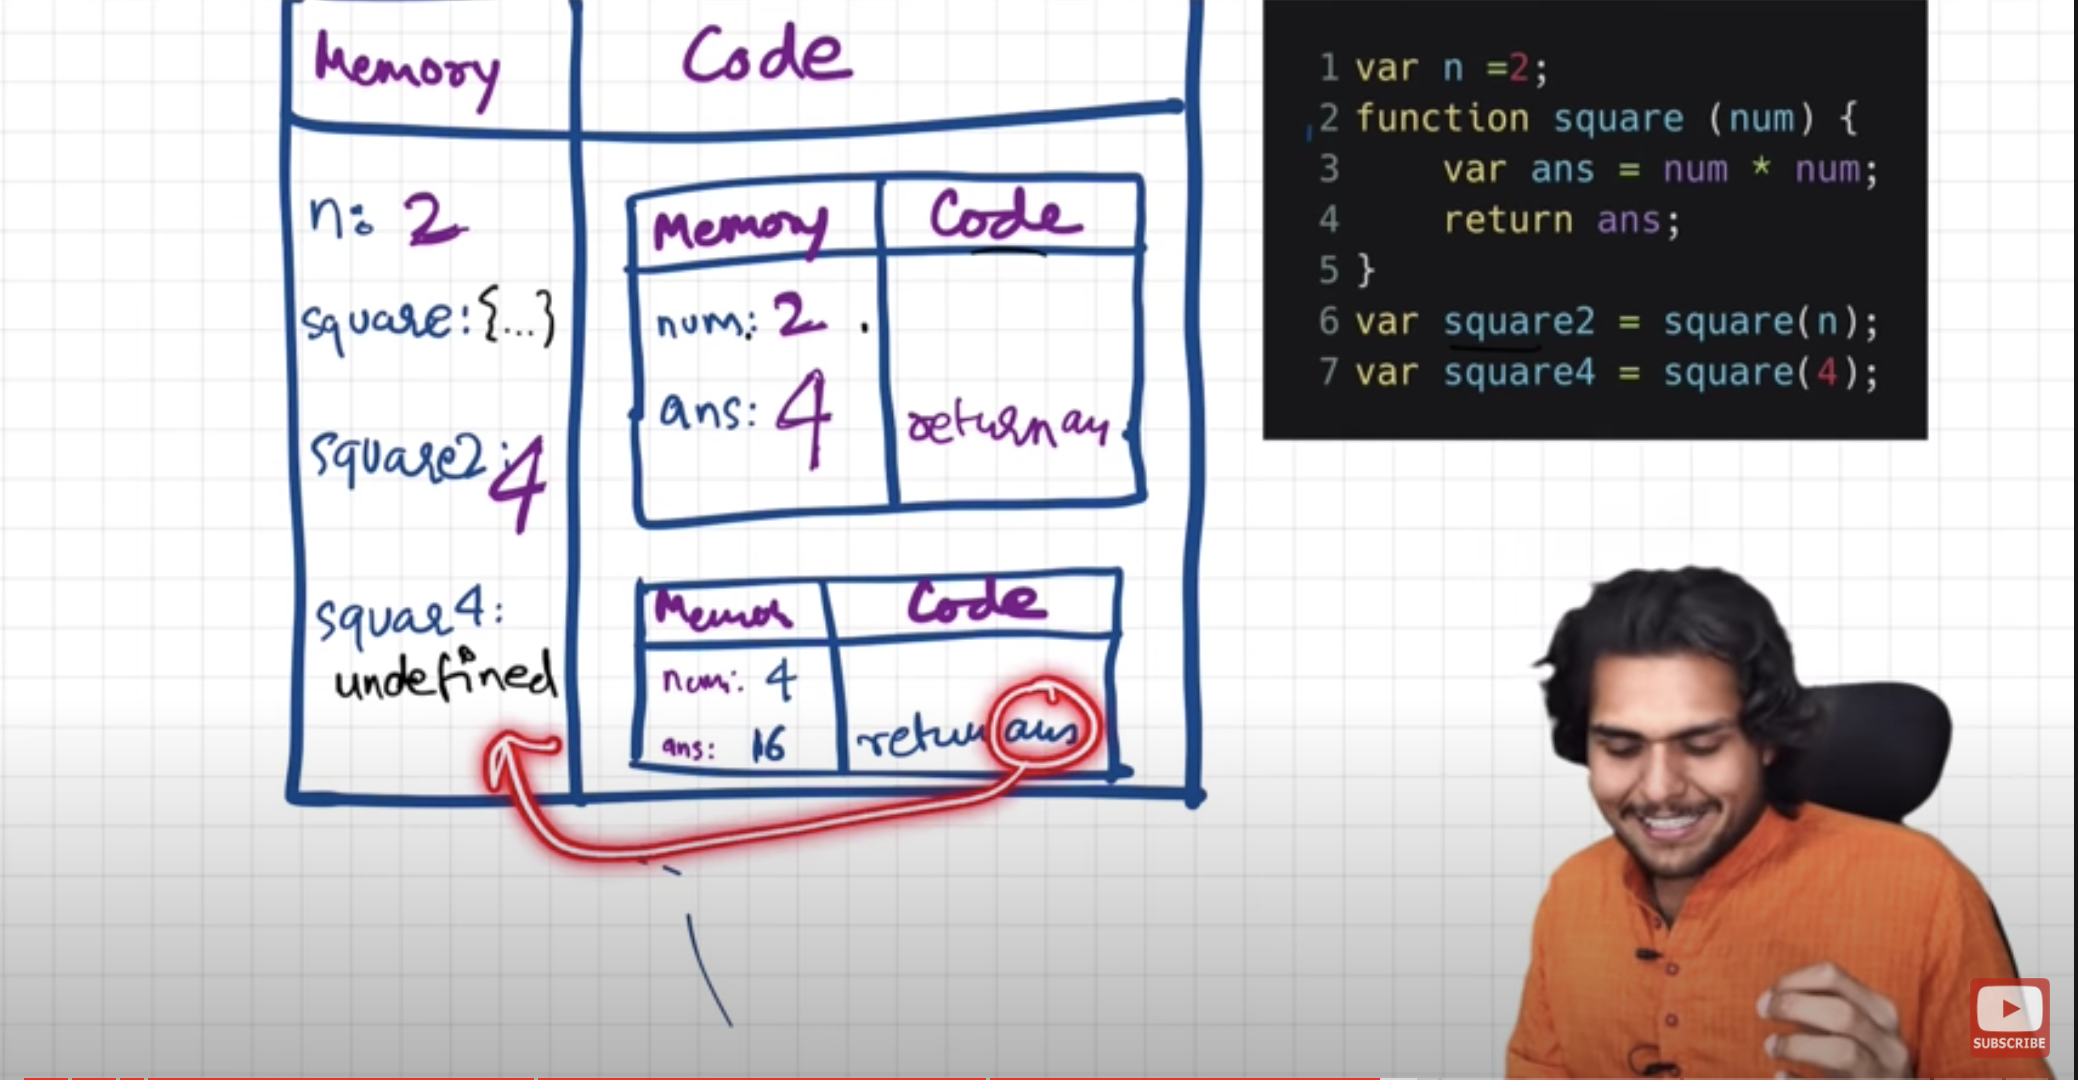 Memory
Code
n: 2
square: {...}
square2: 4
squar4:
undefined
Memory
Code
num: 2
ans: 4
return an
Memor
Code
num: 4
ans: 16
return ans
1 var n =2;
2 function square (num) {
3 var ans = num * num;
4 return ans;
5 }
6 var square2 = square(n);
7 var square4 = square(4);
SUBSCRIBE